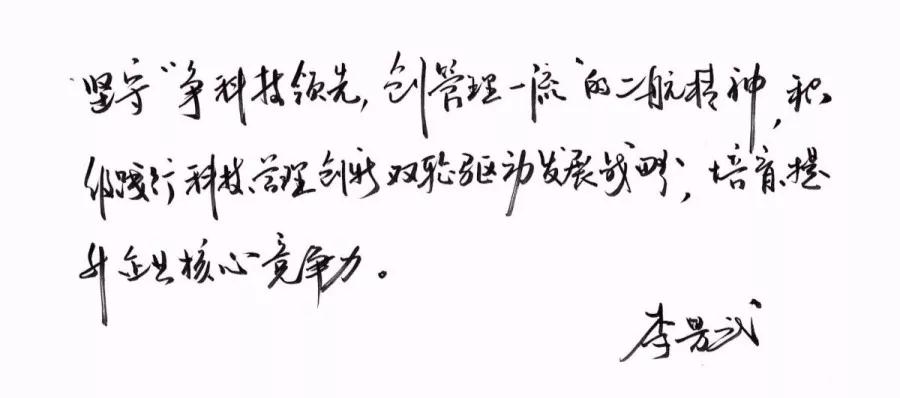 坚守“争科技领先，创管理一流”的二航精神，积
极践行科技、管理创新双轮驱动发展战略，培育、提
升企业核心竞争力。
李